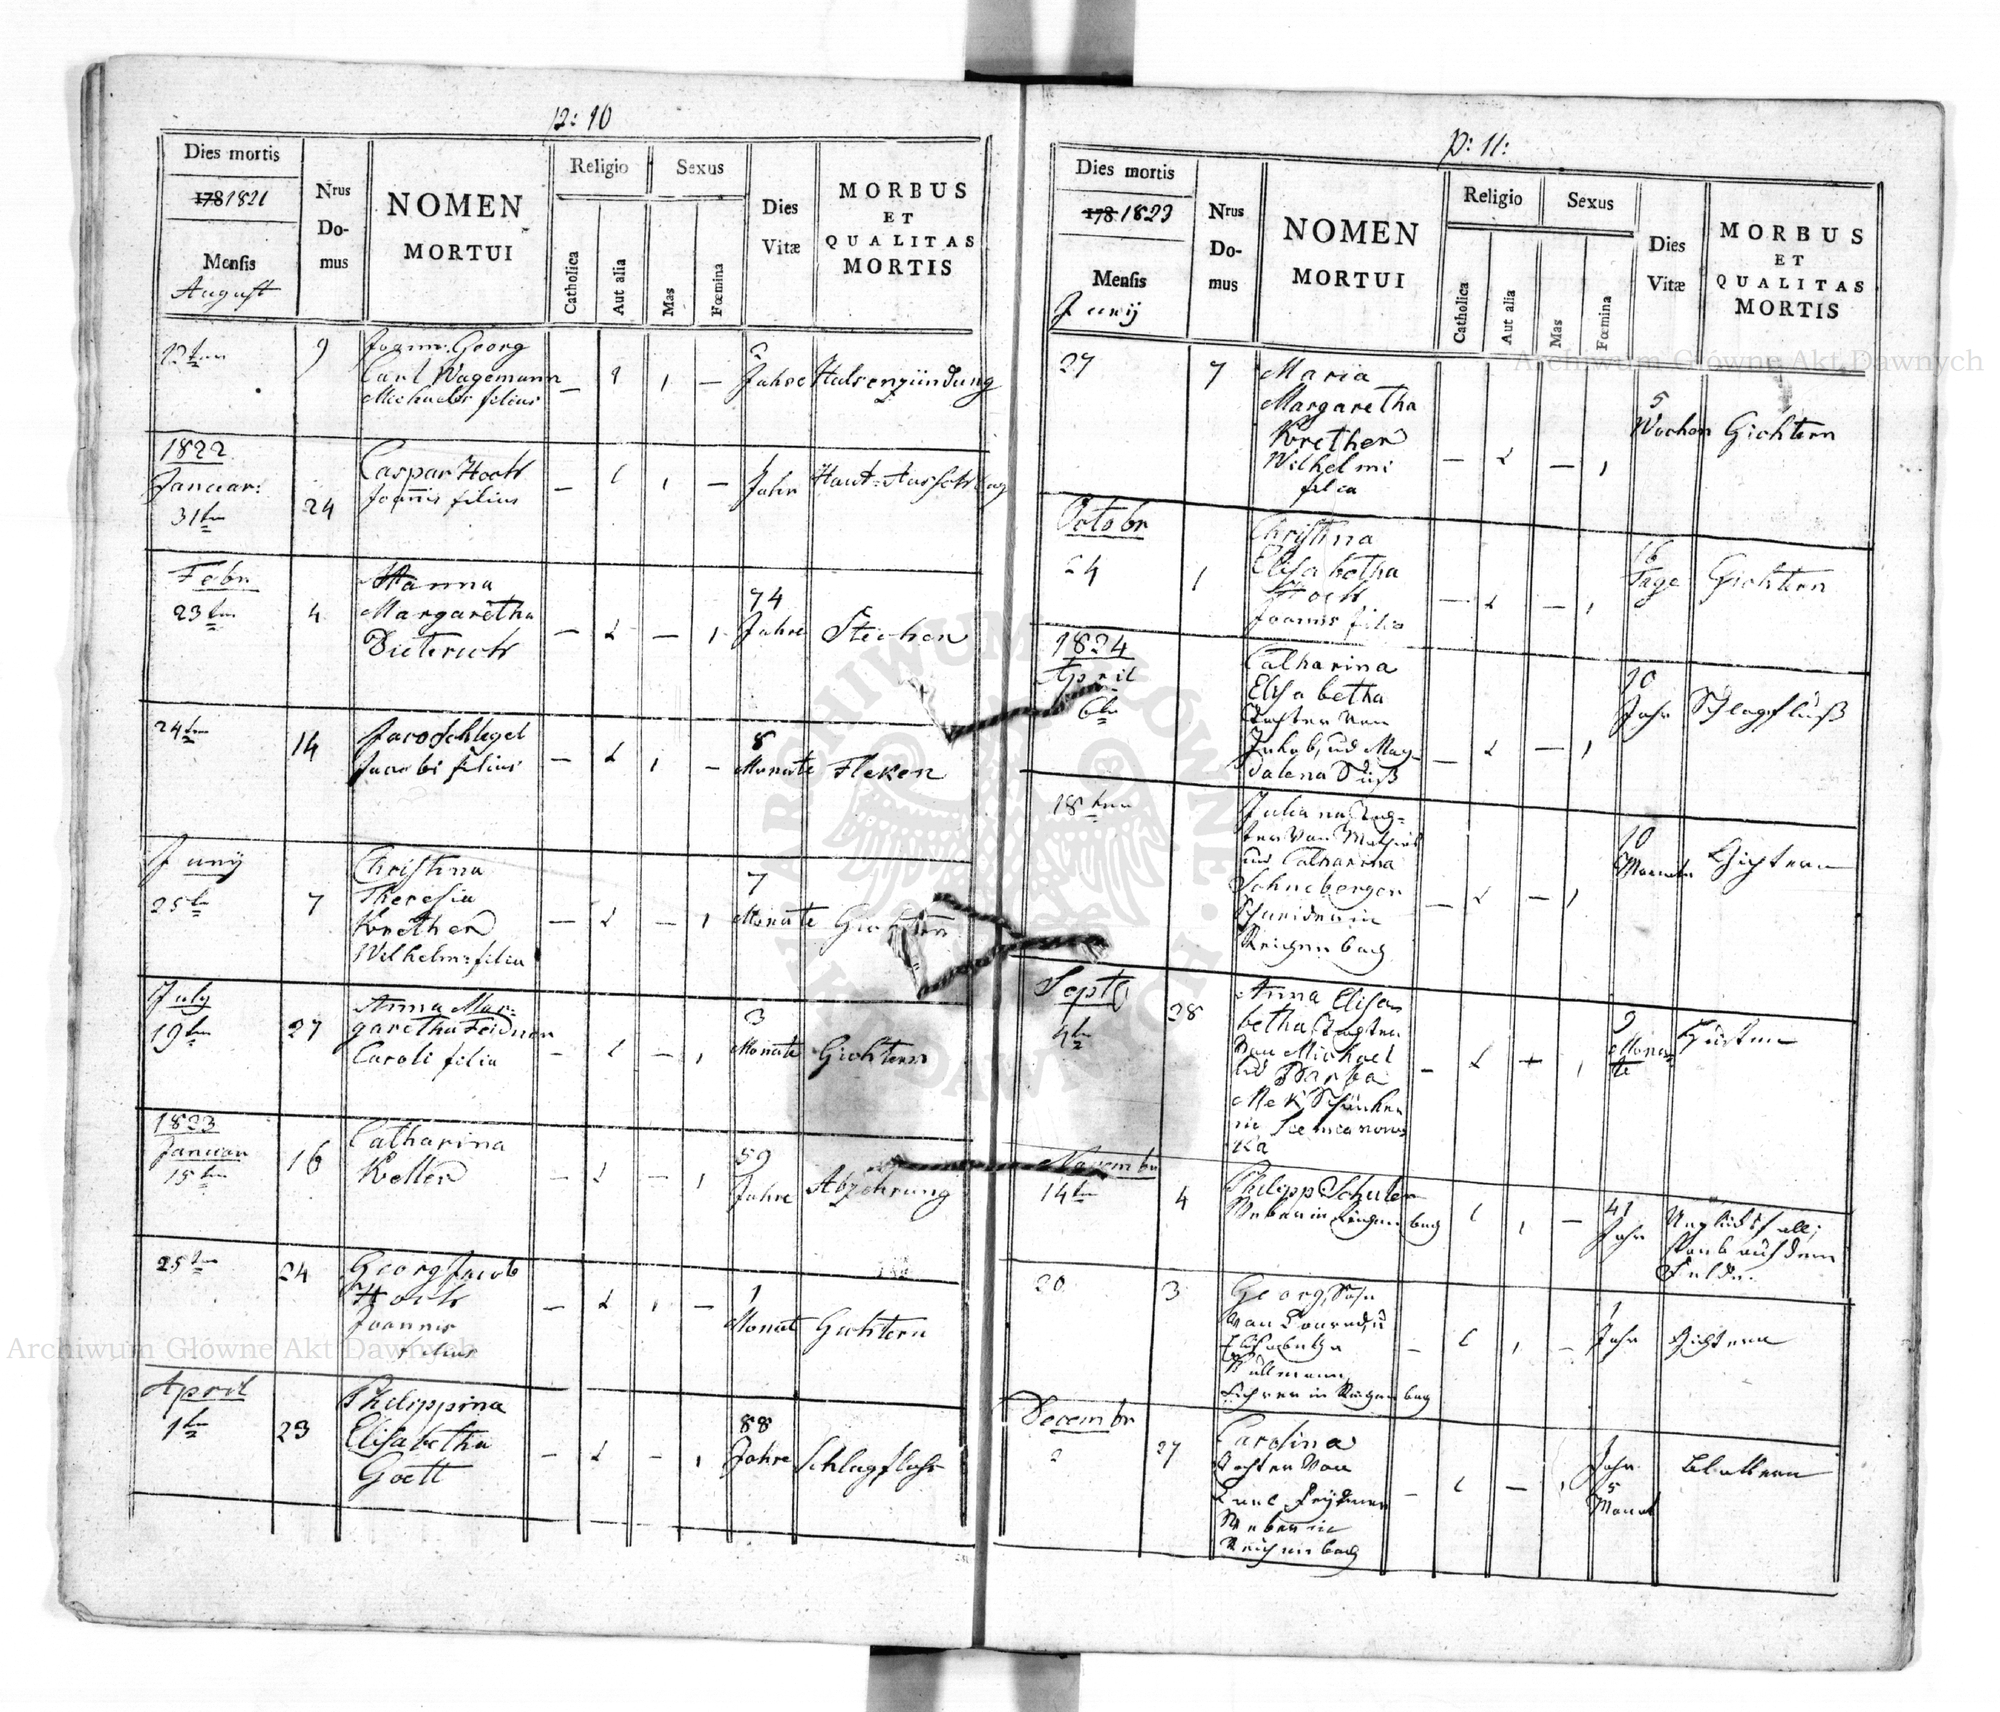 p: 10
Dies mortis
178 1821
Mensis
August
Nrus
Do-
mus
NOMEN
MORTUI
Religio
Catholica
Aut alia
Sexus
Mas
Fœmina
Dies
Vitæ
MORBUS
ET
QUALITAS
MORTIS
12ten
9
Joann: Georg
Carl Wagemann
Michaelis filius
— 1 1 —
2
Jahre
Halsenzündung
1822
Januar:
31ten
24
Caspar Hoch
Joannis filius
— 1 1 —
1
Jahr
Haut-Ausschlag
Febr
23ten
4
Anna
Margaretha
Dieterich
— 1 — 1
74
Jahre
Stechen
24ten
14
Jacobi filius
— 1 1 —
8
Monate
Fleken
Junij
25te
7
Christina
Theresia
Krether
Wilhelm: filia
— 1 — 1
7
Monate
Gichtern
July
19ten
27
Anna Mar-
garetha Feidner
Caroli filia
— 1 — 1
3
Monate
Gichtern
1823
Januar
15ten
16
Catharina
Keller
— 1 — 1
59
Jahre
Abzehrung
25ten
24
Georg Jacob
Hoch
Joannis
filius
— 1 1 —
1
Monat
Gichtern
April
1te
23
Philippina
Elisabetha
Goett
— 1 — 1
88
Jahre
Schlagfluss
p: 11:
Dies mortis
178 1823
Mensis
Junij
Nrus
Do-
mus
NOMEN
MORTUI
Religio
Catholica
Aut alia
Sexus
Mas
Fœmina
Dies
Vitæ
MORBUS
ET
QUALITAS
MORTIS
27
7
Maria
Margaretha
Krether
Wilhelmi
filia
— 1 — 1
5
Wochen
Gichtern
Octobr
24
1
Christina
Elisabetha
Hoch
Joannis filia
— 1 — 1
16
Tage
Gichtern
1824
April
6te
Catharina
Elisabetha
Tochter von
Jakob, und Mag-
dalena Süß
— 1 — 1
10
Jahr
Schlagfluß
18ten
Juliana Toch-
ter von Mathias
und Catharina
Schneberger
Schneider in
Reichenbach
— 1 — 1
10
Monate
Gichtern
Septb
4te
28
Anna Elisa-
betha Tochter
von Michael
und Barba
Mek
in
— 1 + 1
9
Mona-
te
Husten
Novembr
14te
4
Philipp Schuler
Weber in Reichenbach
1 1 —
41
Jahr
Unglücksfall;
starb auf dem
Felde.
20
3
Georg, Sohn
von Conrad, u
Elisabetha
Kullmann
in Reichenbach
— 1 1 —
1
Jahr
Gichtern
Decembr
2
27
Carolina
Tochter von
Karl Feydner
Weber in
Reichenbach
— 1 — 1
1
Jahr
5
Monat
Blattern
Archiwum Główne Akt Dawnych
Archiwum Główne Akt Dawnych